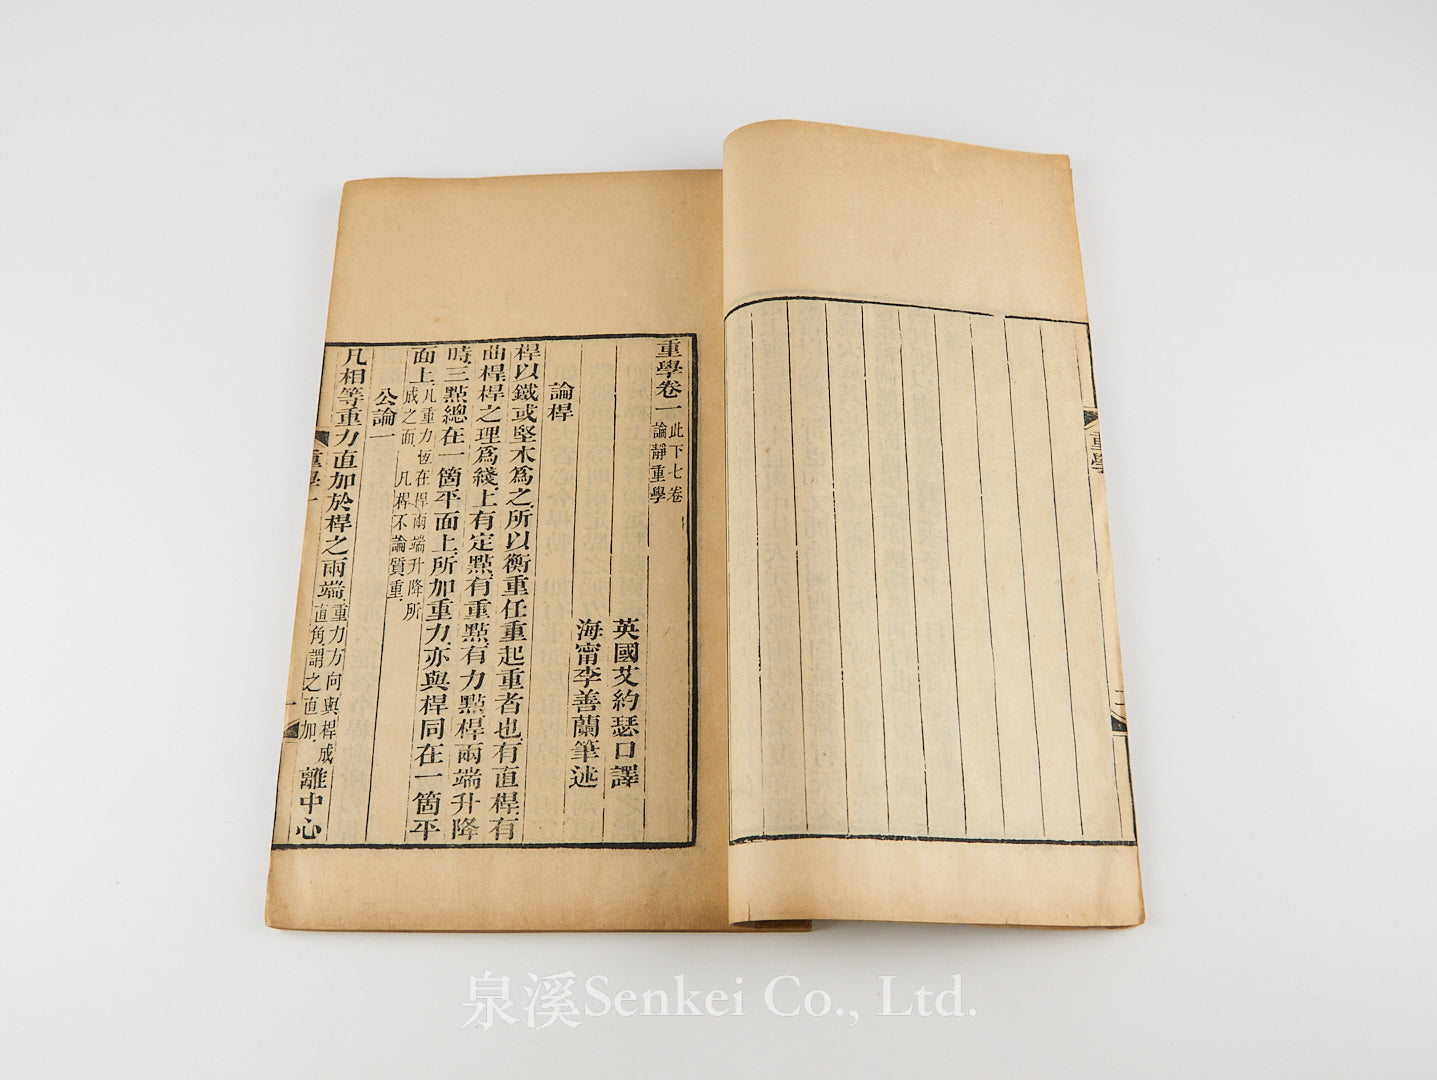 重學
二
重學卷一 此下七卷論靜重學
英國艾約瑟口譯
海甯李善蘭筆述
論桿
桿以鐵或堅木爲之所以衡重任重起重者也有直桿有
曲桿桿之理爲綫上有定點有重點有力點桿兩端升降
時三點總在一箇平面上所加重力亦與桿同在一箇平
面上 凡重力恆在桿兩端升降所成之面 凡桿不論質重
公論一
凡相等重力直加於桿之兩端 重力方向與桿成直角謂之直加 離中心
重學一
一
泉溪Senkei Co., Ltd.